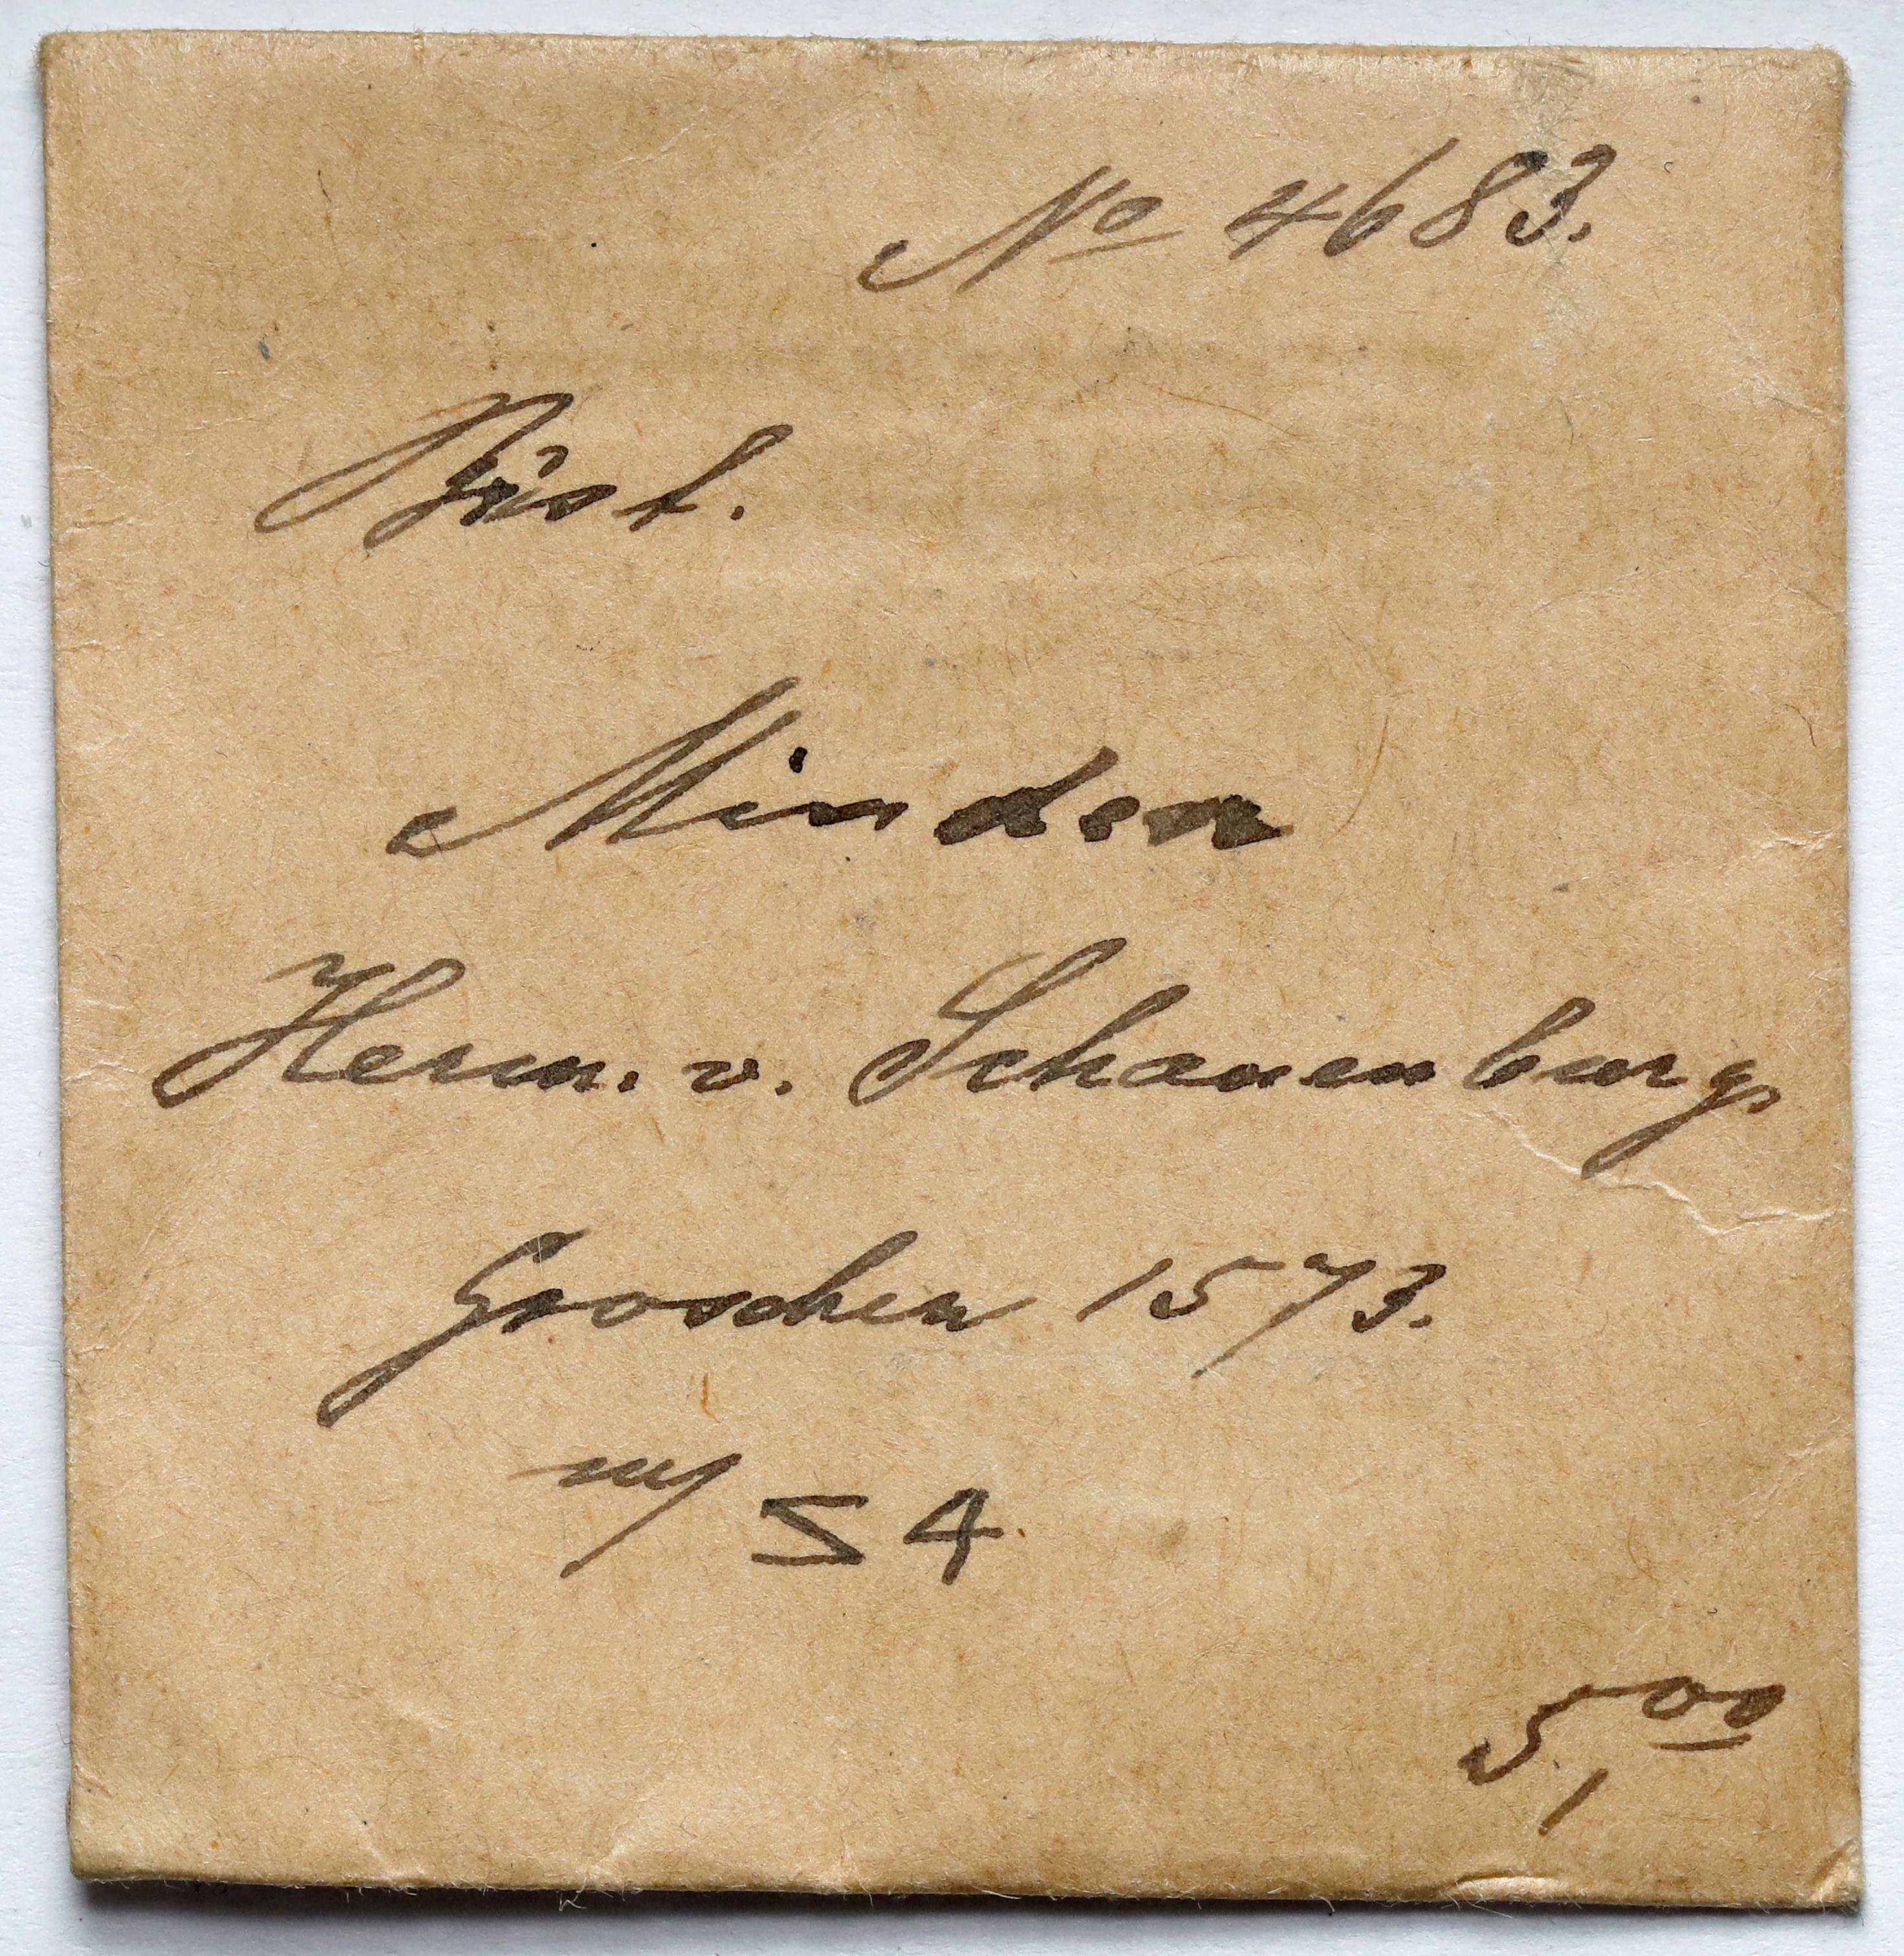 No 4683.
Bist.
Minden
Herm. v. Schauenburg.
Groschen 1573.
m/ S 4
5,00